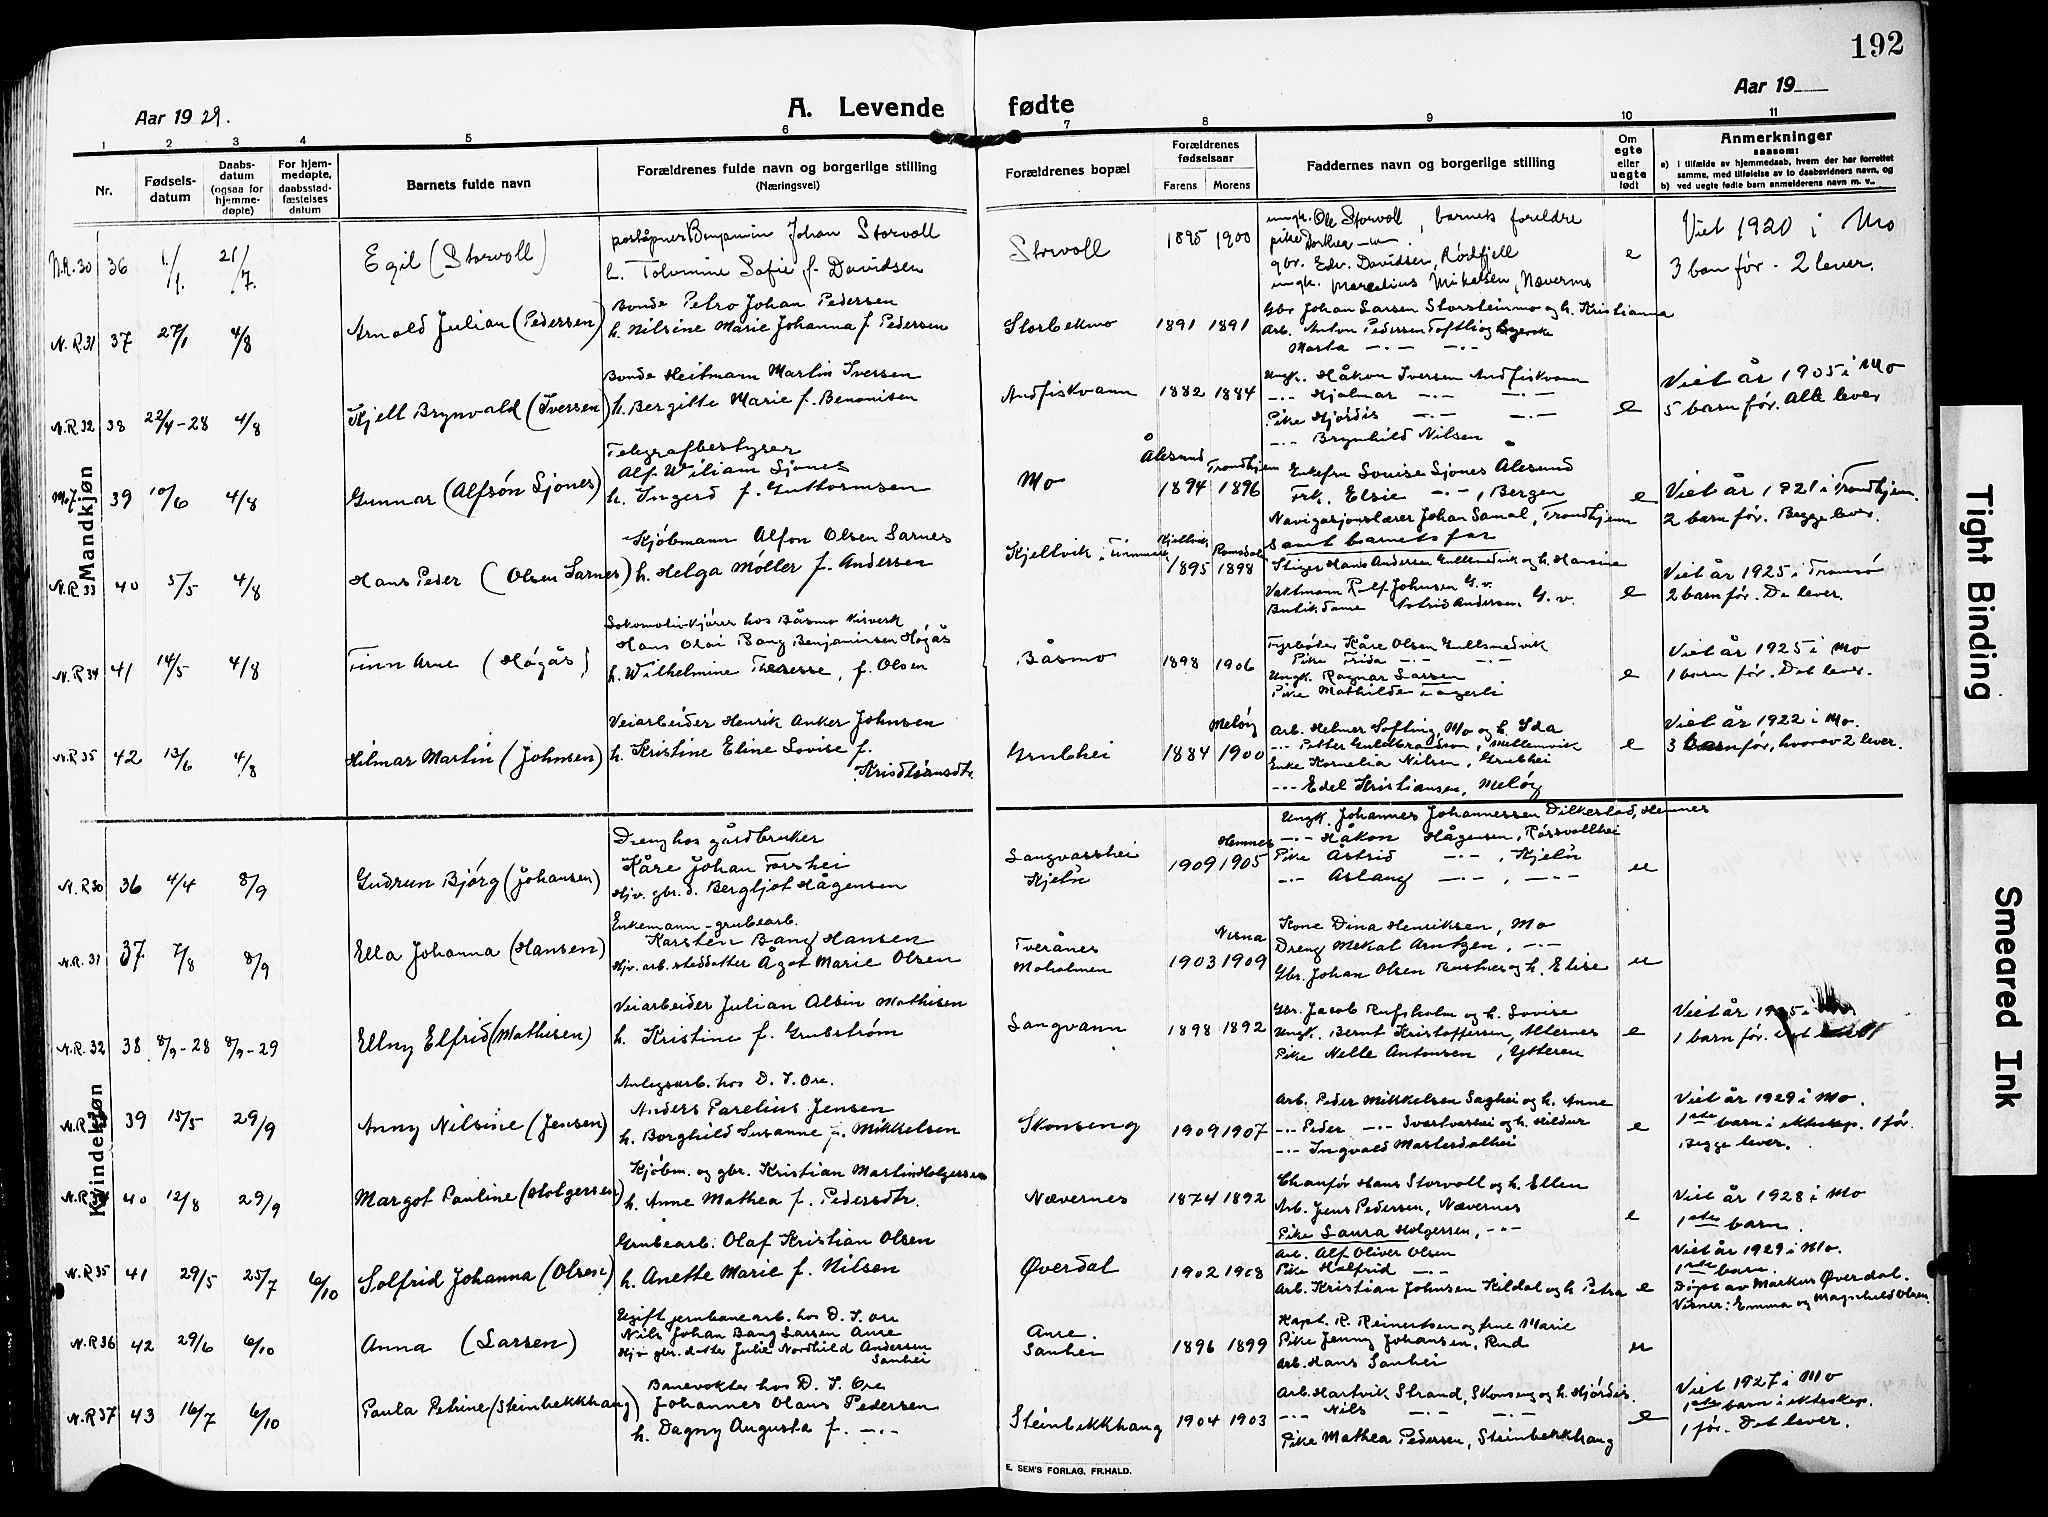 192
Aar 1929.
A. Levende fødte
Aar 19
1 2 3 4 5 6 7 8 9 10 11
Nr.
Fødsels-
datum
Daabs-
datum
(ogsaa for
hjemme-
døpte)
For hjem-
medøpte,
daabsstad-
fæstelses
datum
Barnets fulde navn
Forældrenes fulde navn og borgerlige stilling
(Næringsvei)
Forældrenes bopæl
Forældrenes
fødselsaar
Farens Morens
Faddernes navn og borgerlige stilling
Om
egte
eller
uegte
født
Anmerkninger
saasom:
a) i tilfælde av hjemmedaab, hvem der har forrettet
samme, med tilføielse av to daabsvidners navn, og
b) ved uegte fødte barn anmelderens navn m. v..
Mandkjøn
N.R.30 36 1/1. 21/7. Egil (Storvoll)
poståpner Benjamin Johan Storvoll
h. Tolomine Sofie f. Davidsen
Storvoll 1895 1900
ungk. Ole Storvoll, barnets foreldre
pike Dorthea
gbr. Edv. Davidsen, Rødfjell
ungk. Marcelius Mikalsen, Nævernes
e
Viet 1920 i Mo
3 barn før - 2 lever.
N.R.31 37 27/1 4/8 Arnold Julian (Pedersen)
Bonde Petro Johan Pedersen
h. Nilsine Marie Johanna f. Pedersen
Storbekmo 1891 1891
Gbr Johan Larsen Storsteinmo og h. Kristianna
Arb. Anton Pedersen Toftli og
Marta -·- -·-
N.R.32 38 22/4-28 4/8 Kjell Brynvald (Iversen)
Bonde Heitmann Martin Iversen
h. Bergitte Marie f. Benonisen
Andfiskvann 1882 1884
Ungk. Håkon Iversen Andfiskvann
-·- Hjalmar -·- -·-
Pike Hjørdis -·- -·-
-·- Brynhild Nilsen
e
Viet år 1905 i Mo
5 barn før. Alle lever
Mo7 39 10/6 4/8 Gunnar (Alfsøn Sjones)
Telegrafbestyrer
Alf William Sjones
h. Ingerd f. Guttormsen
Mo Ålesund 1894 Trondhjem 1896
Enkefru Louise Sjones Ålesund
Frk. Elsie -·-, Bergen
Navigasjonslærer Johan Samal, Trondhjem
samt barnets far
e
Viet år 1921 i Trondhjem.
2 barn før. Begge lever.
N.R.33 40 5/5 4/8 Hans Peder (Olsen Sarnes)
Kjøbmann Alfon Olsen Sarnes
h. Helga Møller f. Andersen
Kjellvik i Finnmark Kjellvik 1895 Romsdal 1898
Stiger Hans Andersen Gullsmedvik og h. Hansine
Vaktmann Rolf Johnsen G.v.
Butikdame Astrid Andersen, G.v.
e
Viet år 1925 i Tromsø
2 barn før. De lever.
N.R.34 41 14/5 4/8 Finn Arne (Høgås)
Lokomotivkjører hos Båsmo Kisverk
Hans Olai Bang Benjaminsen Høgås
h. Wilhelmine Therese, f. Olsen
Båsmo 1898 1906
Fyrbøter Kåre Olsen Gullsmedvik
Pike Frida -·- -·-
Ungk. Ragnar Larsen
Pike Mathilde Fagerli
e
Viet år 1925 i Mo
1 barn før. Det lever.
N.R.35 42 13/6 4/8 Hilmar Martin (Johnsen)
Veiarbeider Henrik Anker Johnsen
h. Kristine Eline Lovise f.
Kristiansdtr.
Grubhei 1884 Meløy 1900
Arb. Helmer Softing, Mo og h. Ida
-·- Petter Guldbrandson, Mellemvik
Enke Kornelia Nilsen, Grubhei
-·- Edel Kristiansen, Meløy
e
Viet år 1922 i Mo.
3 barn før, hvorav 2 lever.
Kvindekjøn
N.R30 36 4/4 8/9 Gudrun Bjørg (Johansen)
Dreng hos gårdbruker
Kåre Johan Forshei
Hjv. gbr. d. Bergljot Hågensen
Langvasshei
Kjeln 1909 Hemnes 1905
Ungk. Johannes Johannessen Dilkestad, Hemnes
-·- Håkon Hågensen, Røssvollhei
Pike Astrid -·-, Kjeln
-·- Aslaug -·-, -·-
u
N.R.31 37 7/8 8/9 Ella Johanna (Hansen)
Enkemann - grubearb.
Karsten Bang Hansen
Hjv. arb. steddatter Ågot Marie Olsen
Tverånes
Moholmen 1903 Nesna 1909
Kone Dina Henriksen, Mo
Dreng Mekal Arntzen, -·-
Gbr. Johan Olsen Bustnes og h. Elise
u
N.R.32 38 8/9-28 8/9-29 Ellny Elfrid (Mathisen)
Veiarbeider Julian Albin Mathisen
h. Kristine f. Grubstrøm
Langvann 1898 1892
Gbr. Jacob Rufsholm og h. Lovise
Ungk. Bernt Kristoffersen, Alternes
Pike Nelle Antonsen, Ytteren
e
Viet år 1925 i
1 barn før. Det
N.R. 39 15/5 29/9 Anny Nilsine (Jensen)
Anlegsarb. hos D. I. Ore.
Anders Parelius Jensen
h. Borghild Susanne f. Mikkelsen
Skonseng 1909 1907
Arb. Peder Mikkelsen Saghei og h. Anne
-·- Peder -·- Svartvasshei og h. Hildur
-·- Ingvald Mastersdalhei
e
Viet år 1929 i Mo.
1ste barn i ekteskap. 1 før.
Begge lever.
N.R. 40 12/8 29/9 Margot Pauline (Holgersen)
Kjøbm. og gbr. Kristian Martin Holgersen
h. Anne Mathea f. Pedersdtr.
Nævernes 1874 1892
Chauffør Hans Storvoll og h. Ellen
Arb. Jens Pedersen, Nævernes
Pike Laura Holgersen, -·-
e
Viet år 1928 i Mo
1ste barn.
N.R35 41 29/5 25/7 6/10 Solfrid Johanna (Olsen)
Grubearb. Olaf Kristian Olsen
h. Anette Marie f. Nilsen
Øverdal 1902 1908
Arb. Alf Oliver Olsen
Pike Halfrid -·-
Arb. Kristian Johnsen Kildal og h Petra
e
Viet år 1929 i Mo.
1ste barn.
Døpt av Markus Øverdal.
Vitner: Emma og Magnhild Olsen.
N.R36 42 29/6 6/10 Anna (Larsen)
Ugift jernbanearb. hos D. I. ore
Nils Johan Bang Larsen Aure
Hjv gbr. datter Julie Nordhild Andersen
Sanhei
Aure.
Sanhei 1896 1899
Kapt. R. Reinertsen og frue Marie
Pike Jenny Johansen, Rud
Arb. Hans Sanhei
u
N.R37 43 16/7 6/10 Paula Petrine (Steinbekkhaug)
Banevokter hos D. I. Ore
Johannes Olaus Pedersen
h. Dagny Augusta f. -·-
Steinbekkhaug 1904 1903
Arb. Hartvik Strand, Skonseng og h. Hjørdis.
-·- Nils -·- -·-
Pike Mathea Pedersen, Steinbekkhaug
e
Viet 1927 i Mo
1ste barn i ekteskap.
1 før. Det lever.
E. SEM'S FORLAG, FR.HALD.
Tight Binding
Smeared Ink